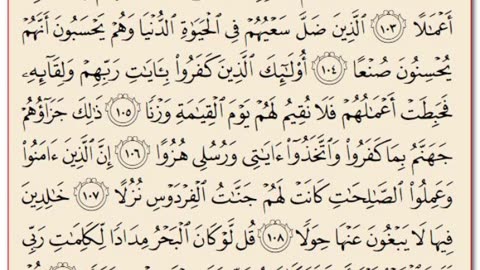 أَعْمَٰلًا ١٠٣ ٱلَّذِينَ ضَلَّ سَعْيُهُمْ فِى ٱلْحَيَوٰةِ ٱلدُّنْيَا وَهُمْ يَحْسَبُونَ أَنَّهُمْ
يُحْسِنُونَ صُنْعًا ١٠٤ أُو۟لَٰٓئِكَ ٱلَّذِينَ كَفَرُوا۟ بِـَٔايَٰتِ رَبِّهِمْ وَلِقَآئِهِۦ
فَحَبِطَتْ أَعْمَٰلُهُمْ فَلَا نُقِيمُ لَهُمْ يَوْمَ ٱلْقِيَٰمَةِ وَزْنًا ١٠٥ ذَٰلِكَ جَزَآؤُهُمْ
جَهَنَّمُ بِمَا كَفَرُوا۟ وَٱتَّخَذُوٓا۟ ءَايَٰتِى وَرُسُلِى هُزُوًا ١٠٦ إِنَّ ٱلَّذِينَ ءَامَنُوا۟
وَعَمِلُوا۟ ٱلصَّٰلِحَٰتِ كَانَتْ لَهُمْ جَنَّٰتُ ٱلْفِرْدَوْسِ نُزُلًا ١٠٧ خَٰلِدِينَ
فِيهَا لَا يَبْغُونَ عَنْهَا حِوَلًا ١٠٨ قُل لَّوْ كَانَ ٱلْبَحْرُ مِدَادًا لِّكَلِمَٰتِ رَبِّى